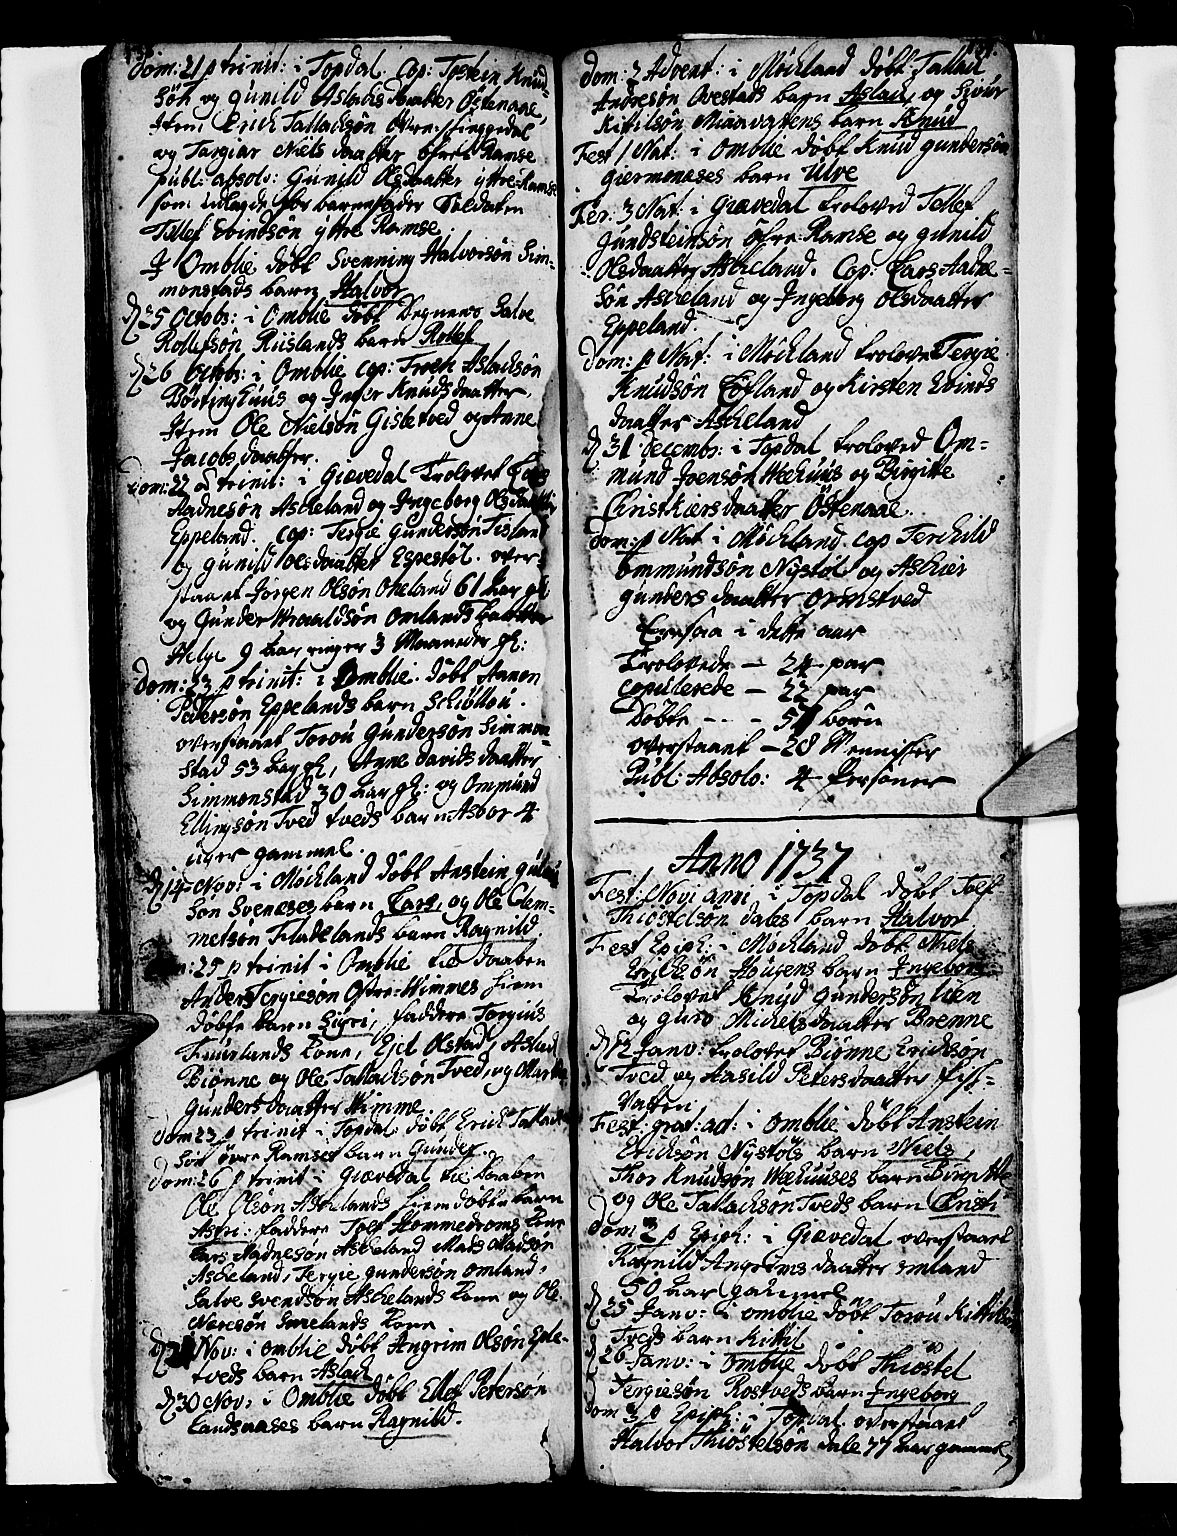 138.
Dom: 21 p trinit: i Topdal. Cop: Tostein Knud-
søn og Gunild Aslachs daatter Östenaae,
Item Erich Tallachsøn øvre
og Targiær Niels daatter öfre Ramse
publ: absolv: Gunild Olsdaatter yttre Ramse
som udlagde for barnefader Soldaten
Tellef Evindsøn yttre Ramse.
J Omblie døbt Svenning Halvorsøn Sim-
monstads barn Halvor
D 25 Octobr: i Omblie döbt Degnens Salve
Rollefsøn Riislands barn Rollef
D 26 Octobr: i Omblie cop: Troen Aslachsön
og Inger Knuds daatter,
Item Ole Nielsön Gisletved og Anne
Jacobs daatter.
Dom: 22 p trinit: i Giævedal Trolovet Lars
Aadnesøn Askeland og Jngeborg Olsdaatter
Eppeland. cop: Tergie Gundersøn
og Gunild Olsdaatter Espestøl. over-
staaet Jörgen Olsøn Okeland 61 aar gl
og Gunder Haraldsøn Omlands daatter
Helge 9 aar ringer 3 Maaneder gl:
Dom: 23 p trinit: i Omblie. döbt Aanon
Pedersøn Eppelands barn
overstaaet Toroü Gundersøn Simmon-
stad 53 aar gl, Anne Davids daatter
Simmonstad 30 aar gl: og Ommund
Ellingsøn Tved tveds barn Asbor 4
uger gammel.
D 14 Nov: i Møckland döbt Anstein
søn Sveneses barn Lars, og Ole Clem-
metsøn Fladelands barn Ragnild.
Dom: 25 p trinit i Omblie til daaben
Anders Tergiesøn Ostre-Wimmes hiem
døbte barn Sigri, faddere Torgiüs
Fuurlands kone, Ejel Olstad, Aslach
Biønne og Ole Tallachsøn Tved, og
Gunders daatter Wimme.
Dom 23 p trinit i Topdal. döbt Erich Tallach-
søn övre Ramses barn Gunder.
Dom: 26 p trinit i Giævedal til daaben
Ole Olsøn Askelands hiemdøbte barn
Astri: faddere Joef Hommedroms kone
Lars Aadnesøn Askeland, Mads Madsøn
Askeland, Tergie Gundersøn Omland,
Salve Svendsøn Askelands kone og Ole
kone
D Nov: i Omblie döbt Angrim Olsøn Egle-
tveds barn Aslach
D 30 Nov: i Omblie döbt Ellef Petersøn
Landsaases barn Ragnild.
139.
Dom: 2 Advent: i Möckland döbt Tallach
Andresøn Ovestads barn Aslach, og Sivür
Kittilsøn Miaavatns barn Knud
Fest 1 Nat: i Omblie döbt Knud Gundersøn
Giermonæses barn Ulve
Fer: 3 Nat: i Giævedal troloved Tellef
Gundsteinsøn Öfre Ramse og Gunild
Olsdaatter Askeland. Cop: Lars Aadne-
søn Askeland og Jngeborg Olsdaatter
Eppeland.
Dom: p Nat: i Möckland trolovet Tergie
Knudsøn Lofland og Kirsten Evinds
daatter Askeland
D 31 Decembr: i Topdal troloved Om-
mund Joensøn Weehuus og Birgitte
Christkiers daatter Östenaae.
Dom: p Nat i Möckland. cop Terchild
Ommundsøn Nystøl og Askier
Gunders daatter Ormstved
Ere saa i dette aar
Trolovede — 24 par
Copulerede — 22 par
Döbte - - - 57 børn
Overstaaet — 28 Mennisker
Publ: Absolv: 4 Personer
Anno 1737
Fest: Novi anni, i Topdal döbt Joef
Thiostelsøn Dales barn Halvor
Fest Epiph: i Möckland döbt Niels
Haügens barn Jngeborg
Trolovet Knud Gundersøn Lien
og Guro Michels daatter Brenne
D 12 Janv: trolovet Biønne Erichsøn
Tved og Aasild Peters daatter Fisk-
vatten
Fest: grat: act: i Omblie döbt Anstein
Erichsøn Nystøls barn Niels,
Thor Knudsøn Weehuuses barn Birgitte
og Ole Tallachsøn Tveds barn Christi
Dom 2 p Epiph: i Giævedal overstaaet
Ragnild Angrims daatter Omland
50 aar gammel
D 25 Janv: i Omblie döbt Toroü Kittilsøn
Tveds barn Kittil
D 26 Janv: i Omblie döbt Thiöstel
Tergiesøn Rostveds barn Jngeborg
Dom 3 p Epiph: i Topdal overstaaet
Halvor Thiöstelsøn Dale 77 aar gammel